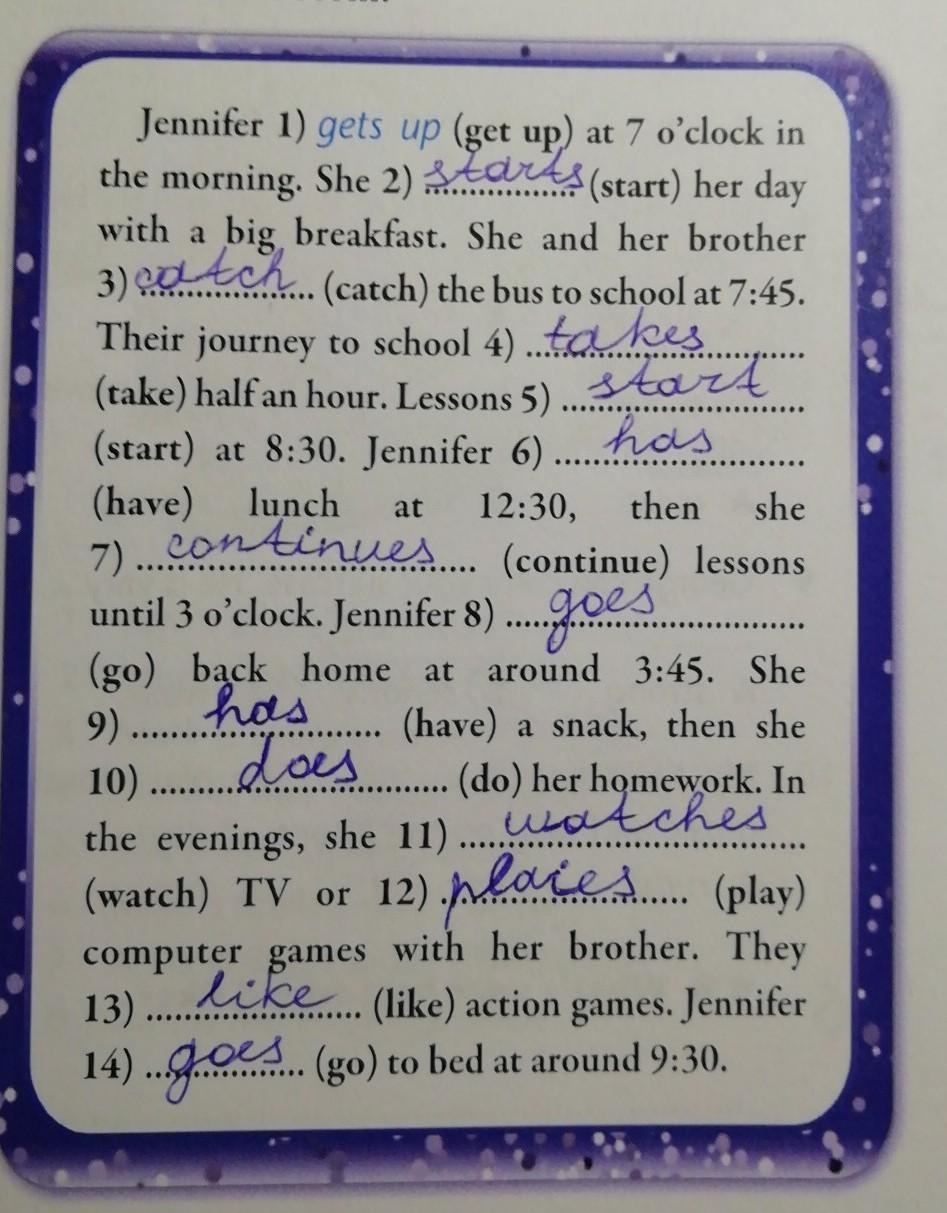 Jennifer 1) gets up (get up) at 7 o'clock in
the morning. She 2) starts (start) her day
with a big breakfast. She and her brother
3) catch (catch) the bus to school at 7:45.
Their journey to school 4) takes
(take) half an hour. Lessons 5) start
(start) at 8:30. Jennifer 6) has
(have) lunch at 12:30, then she
7) continues (continue) lessons
until 3 o'clock. Jennifer 8) goes
(go) back home at around 3:45. She
9) has (have) a snack, then she
10) does (do) her homework. In
the evenings, she 11) watches
(watch) TV or 12) plaies (play)
computer games with her brother. They
13) like (like) action games. Jennifer
14) goes (go) to bed at around 9:30.